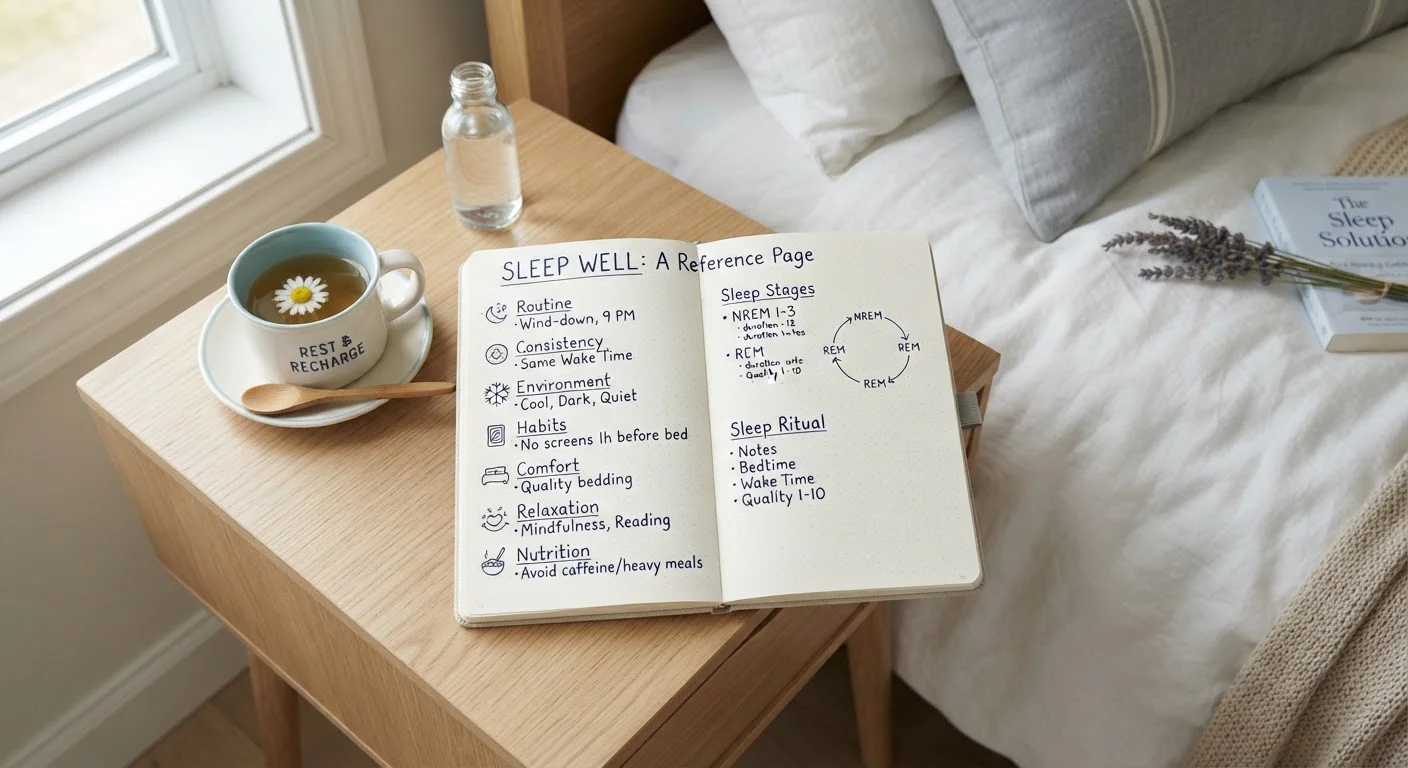 SLEEP WELL: A Reference Page
Routine
• Wind-down, 9 PM
Consistency
• Same Wake Time
Environment
• Cool, Dark, Quiet
Habits
• No screens 1h before bed
Comfort
• Quality bedding
Relaxation
• Mindfulness, Reading
Nutrition
• Avoid caffeine/heavy meals
Sleep Stages
• NREM 1-3
• REM
• Quality 1-10
NREM
REM
REM
REM
Sleep Ritual
• Notes
• Bedtime
• Wake Time
• Quality 1-10
REST &
RECHARGE
The
Sleep
Solution